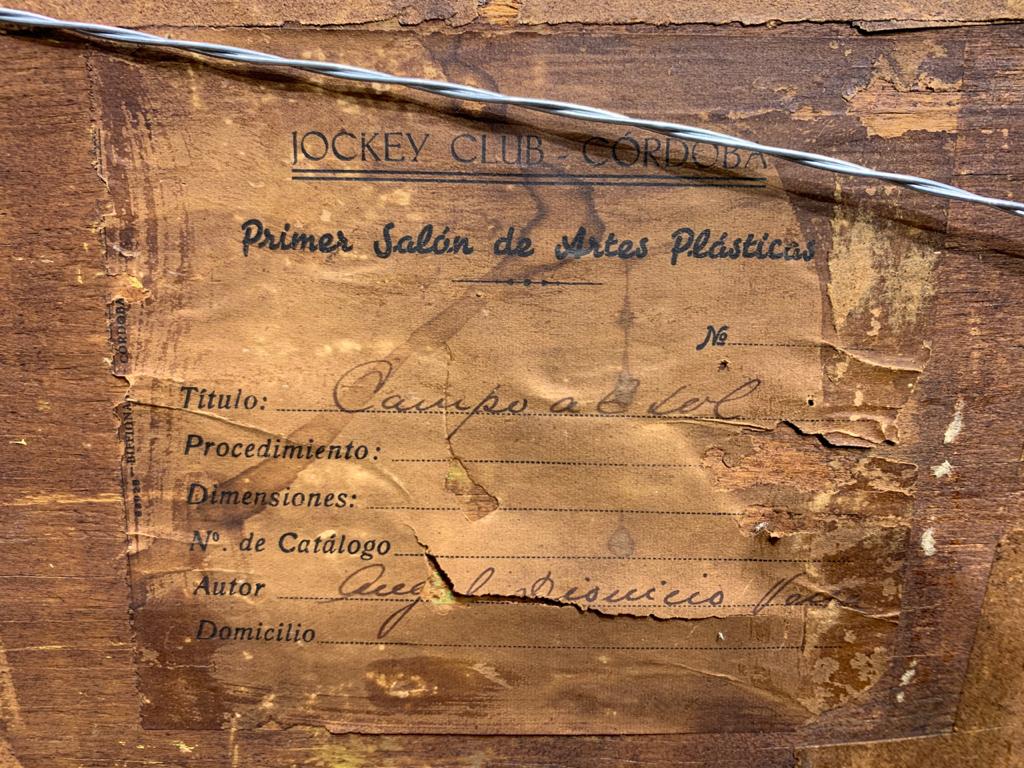 JOCKEY CLUB - CÓRDOBA
Primer Salón de Artes Plásticas
Nº
Título: Campo al sol
Procedimiento:
Dimensiones:
Nº. de Catálogo
Autor Angel Dionicio
Domicilio
CÓRDOBA